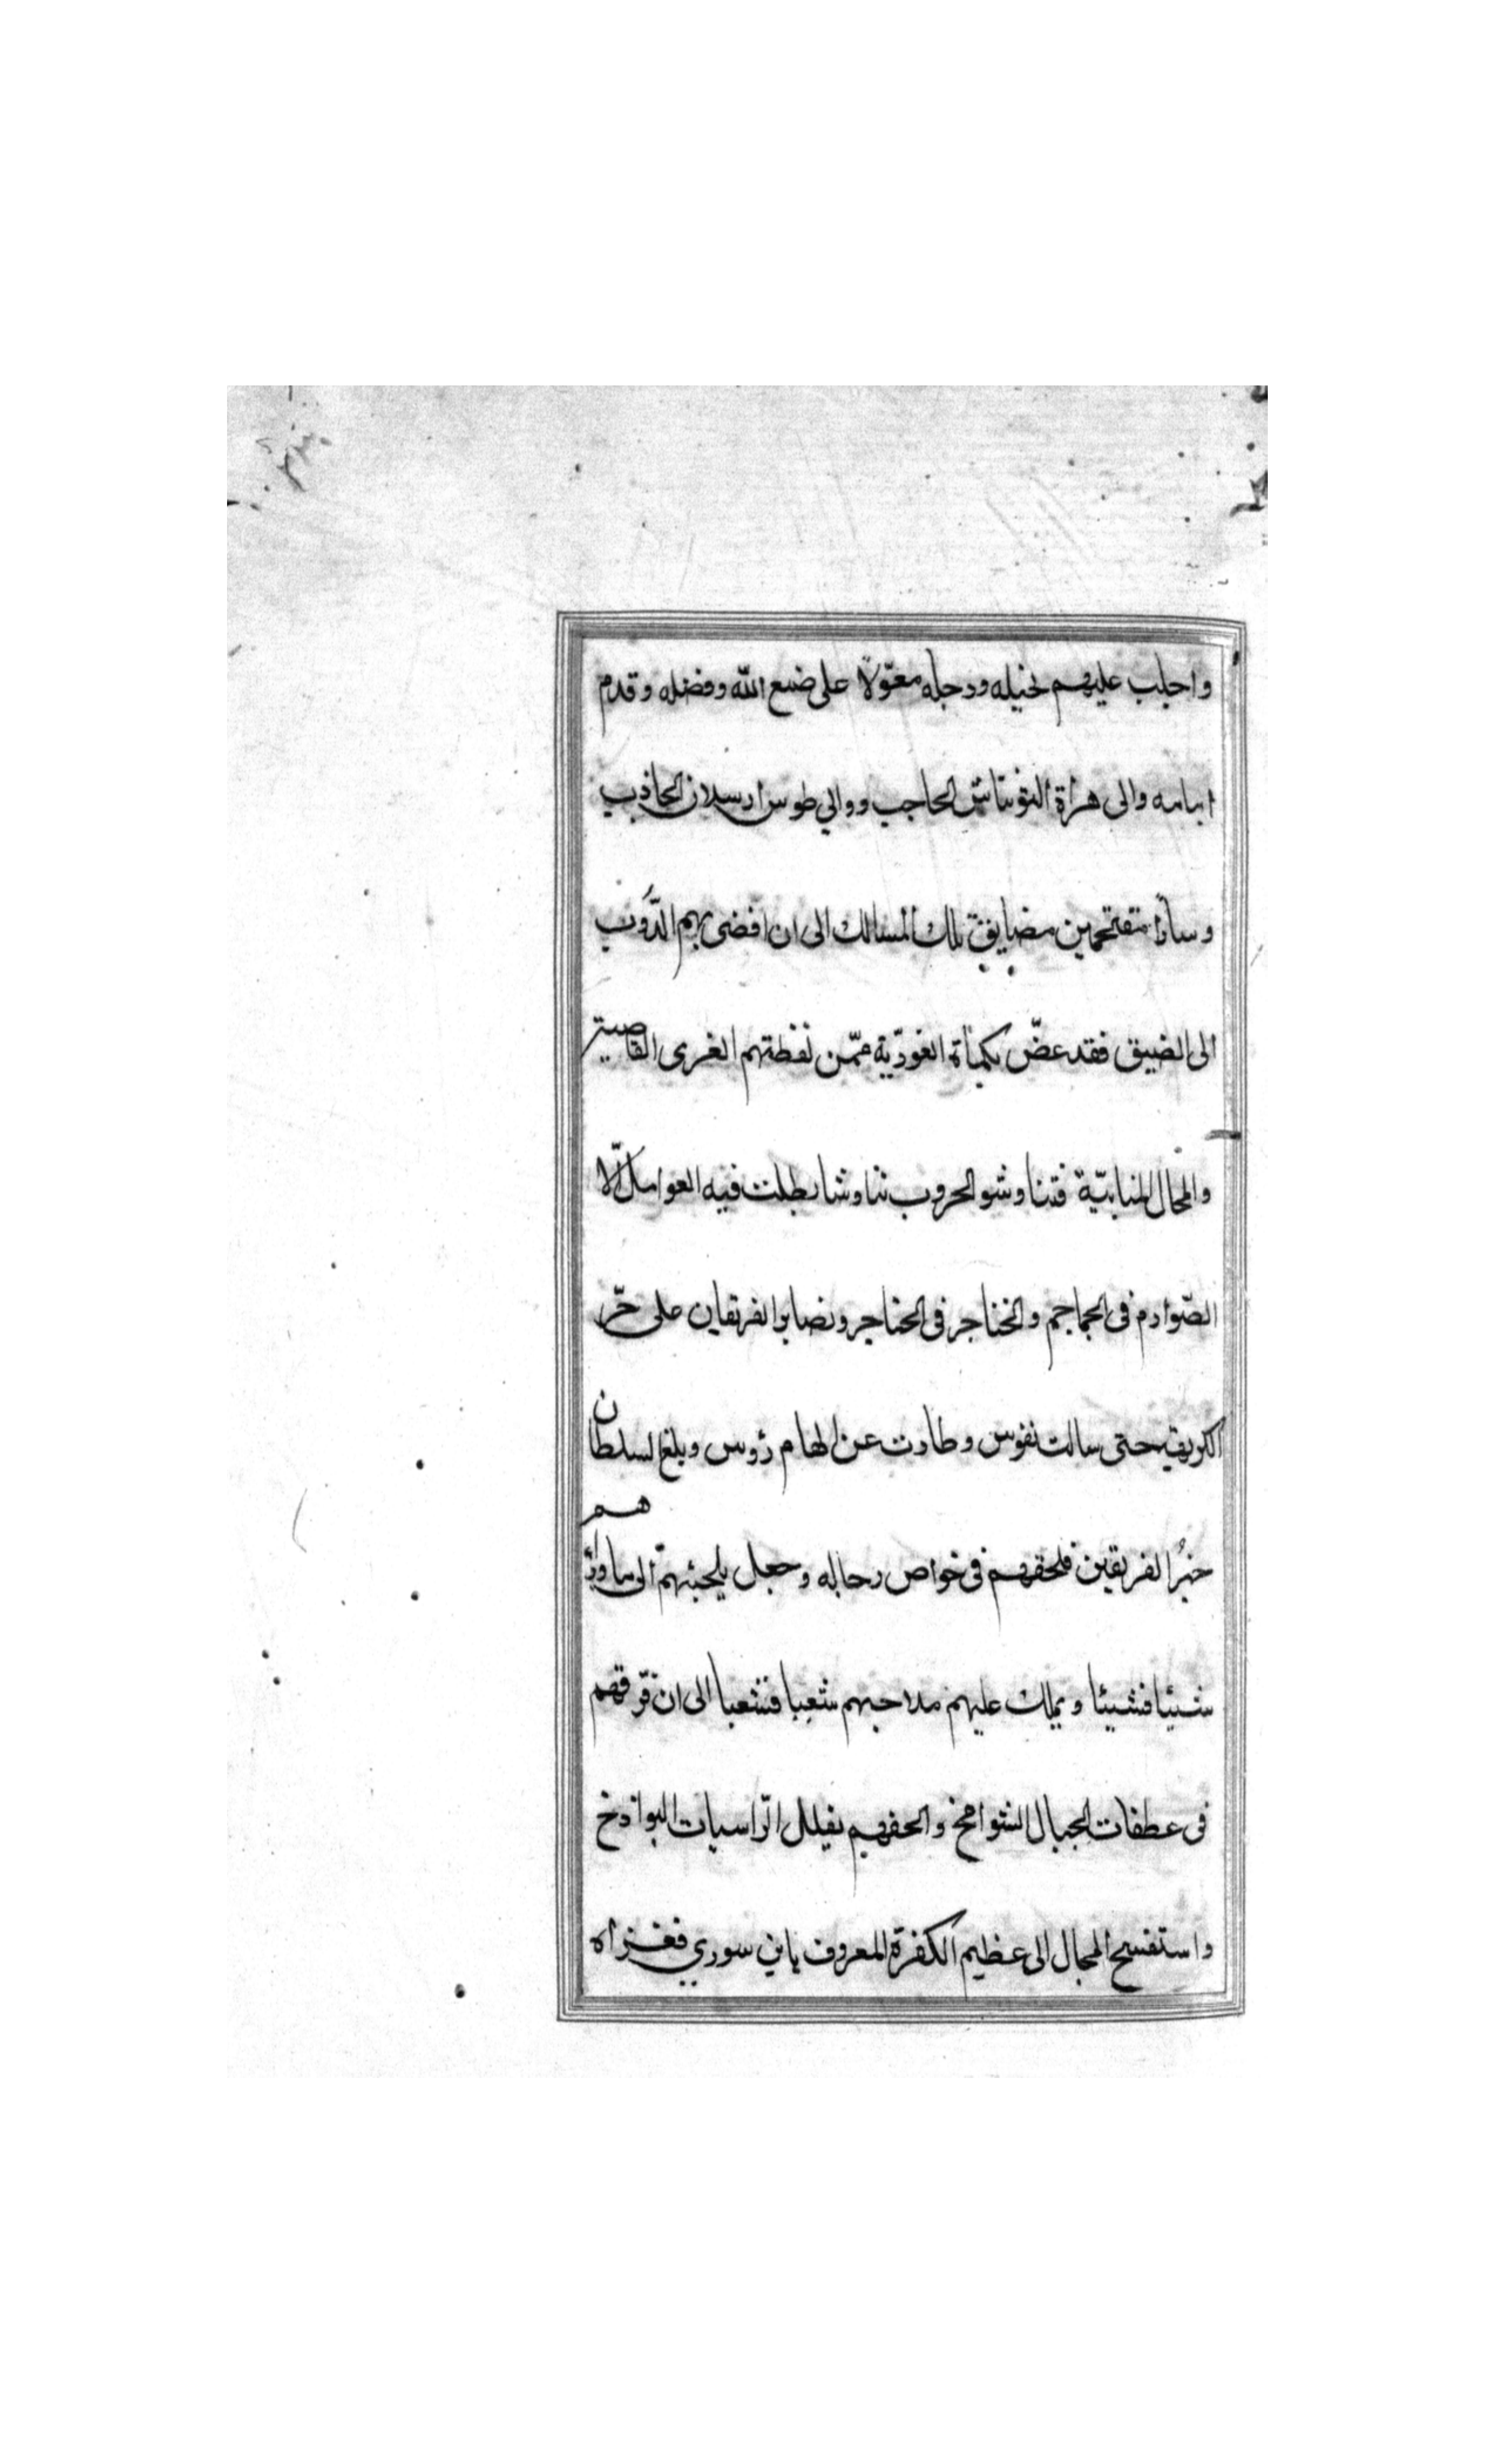 واجلب عليهم بخيله ورجله معوّلا على صنع الله وفضله وقدم
امامه والى هراة التونتاش الحاجب ووالي طوس ارسلان الجاذب
وسارا متقتحمين مضايق تلك المسالك الى ان افضى بهم الدُّوب
الى الضيق فقد عضّ بكماة الغوريّة ممّن لفظتهم الغرى القاصية
والمحال المنابيّة فتناوشو الحروب تناوشا بطلت فيه العوامل الّا
الصّوارم فى الجماجم والخناجر فى الحناجر وتصابوا الفريقان على حرّ
الكريهة حتى سالت نفوس وطارت عن الهام رؤس وبلغ السلطان
خبرُ الفريقين فلحقهم فى خواص رجاله وجعل يلجئهم الى ما ورائهم
شيئا فشيئا ويملك عليهم ملاحبهم شعبا فشعبا الى ان فرّقهم
فى عطفات الجبال الشوامخ والحفهم بقلل الرّاسيات البواذخ
واستفسح المجال الى عظيم الكفرة المعروف بابن سوري فغزاه